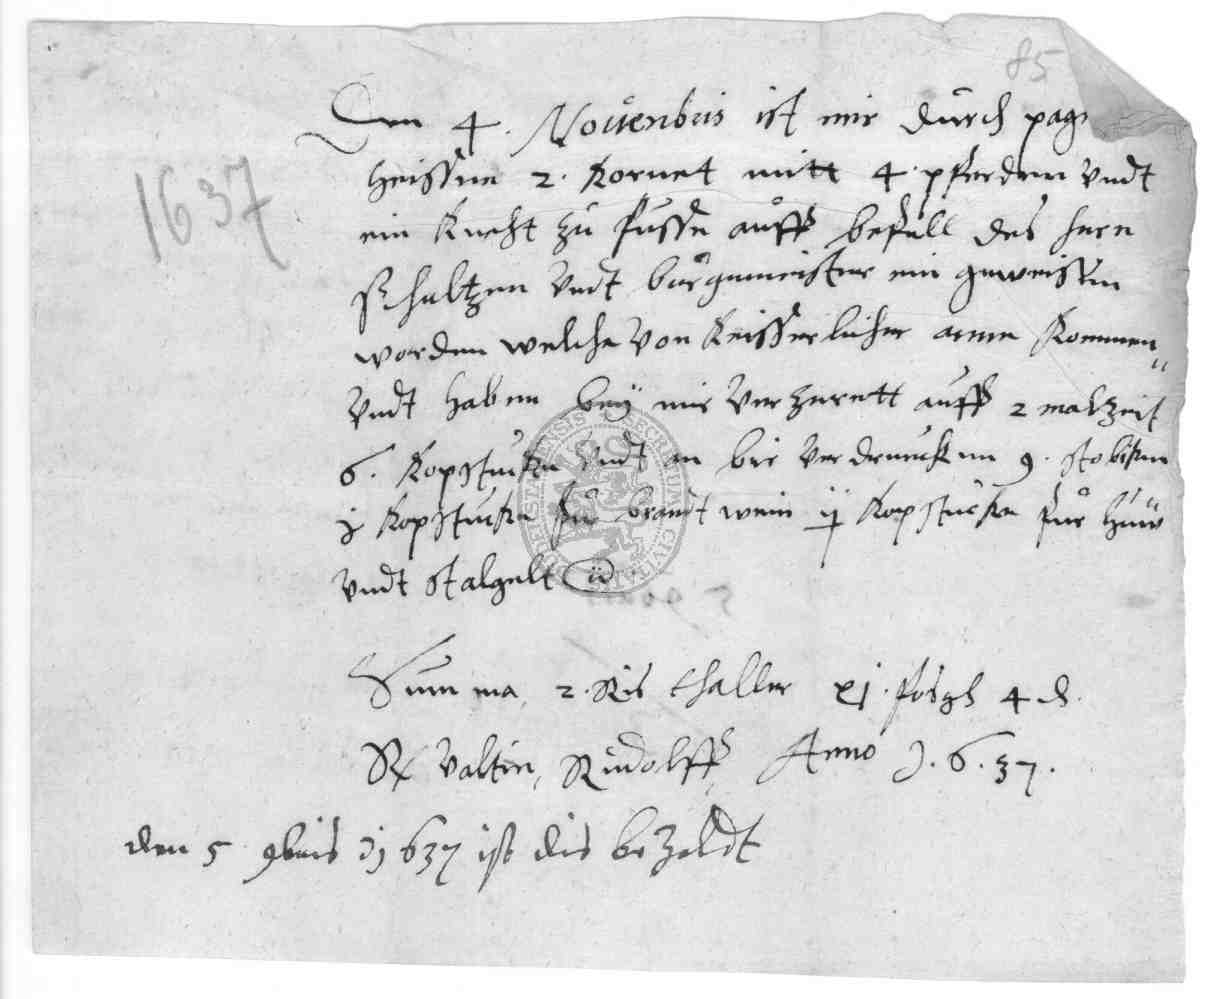 85
1637
Den 4. Nouenbris ist mir durch pag
heissen 2. Kornet mitt 4 pferden vndt
ein Knecht zu fusse auff befell des hern
schultzen vndt burgemeister ein geweissen
worden welche von Keisserlicher arme Kommen
vndt haben bey mir verzerett auff 2 malzeit
6. Kopstucke vndt an bir verdruncken 9. stobichen
j Kopstucke fur brandt wein ij Kopstucke fur huw
vndt stalgelt
Summa 2. Ris thaller xj. 4 d.
Valtin Rudolff Anno 1.6.37.
den 5 9bris 1637 ist dis bezaldt